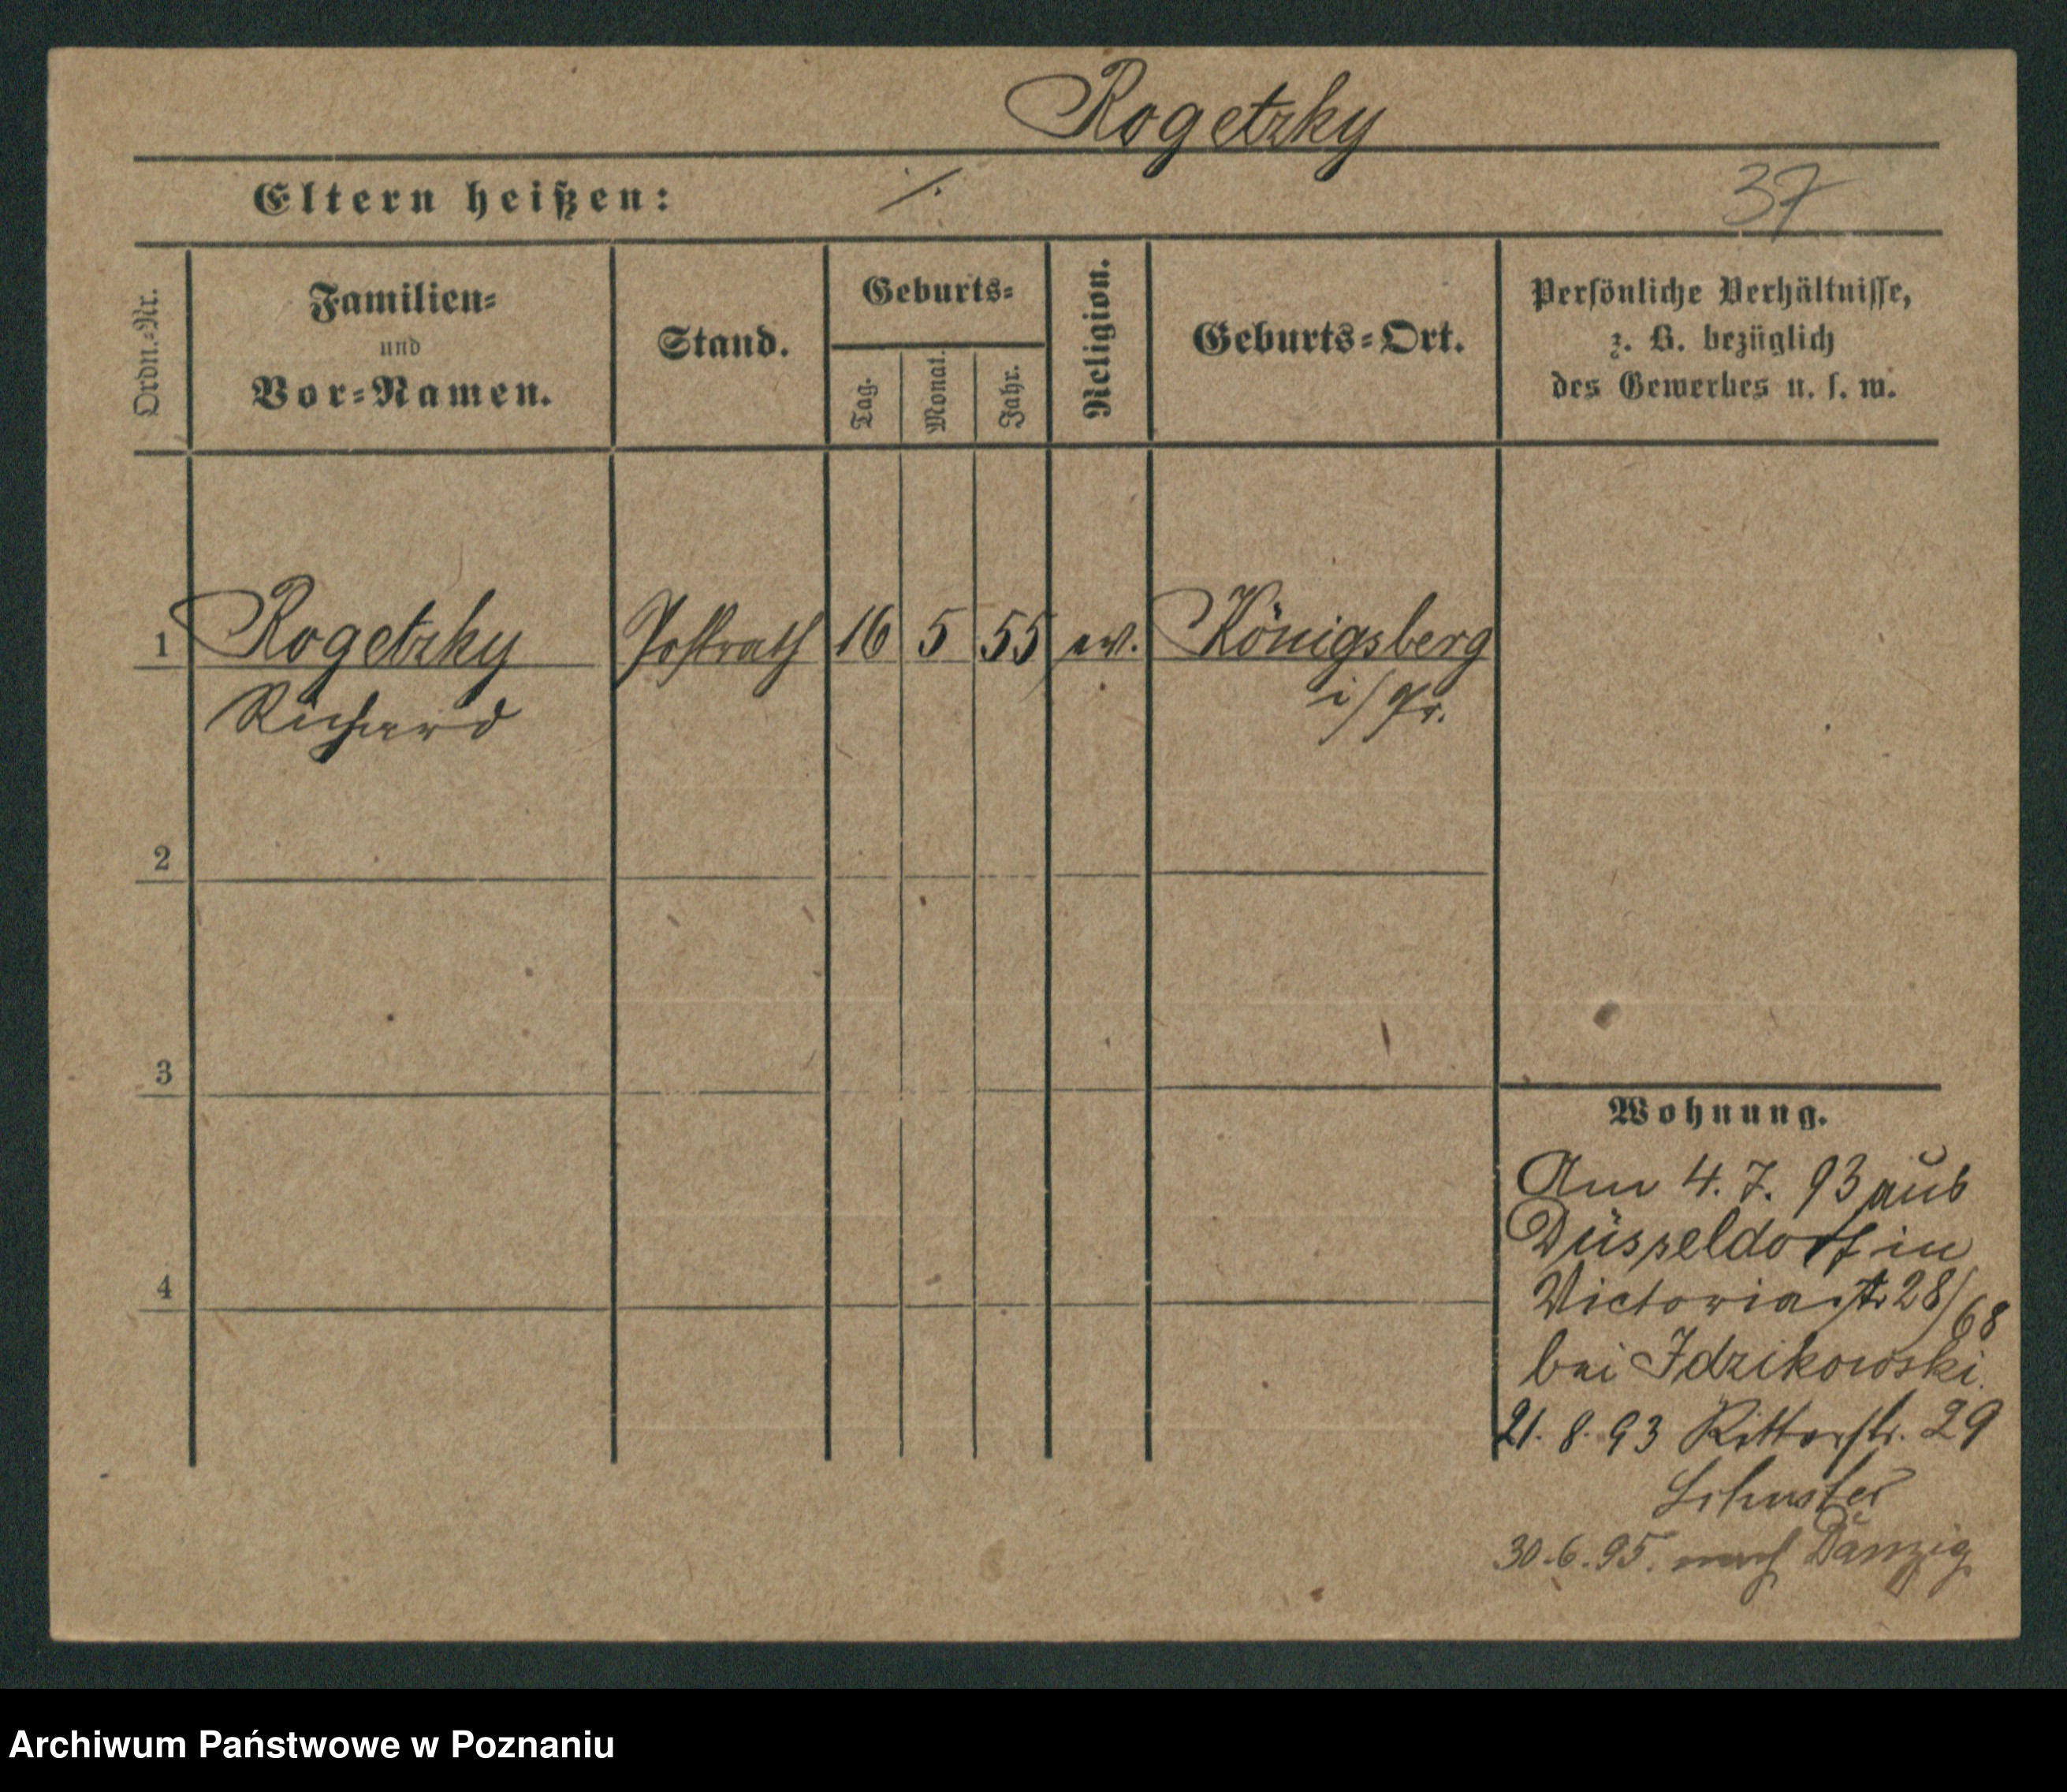 Rogetzky
Eltern heißen: ./.
37
Ordn.-Nr.
Familien-
und
Vor-Namen.
Stand.
Geburts-
Tag.
Monat.
Jahr.
Religion.
Geburts-Ort.
Persönliche Verhältnisse,
z. B. bezüglich
des Gewerbes u. s. w.
1 Rogetzky Postrath 16 5 55 ev. Königsberg
Richard i/Pr.
2
3
4
Wohnung.
Am 4. 7. 93 aus
Düsseldorf in
Victoriastr 28/68
bei Idzikowski.
21. 8. 93 Ritterstr. 29
Schuster
30.6.95. nach Danzig
Archiwum Państwowe w Poznaniu